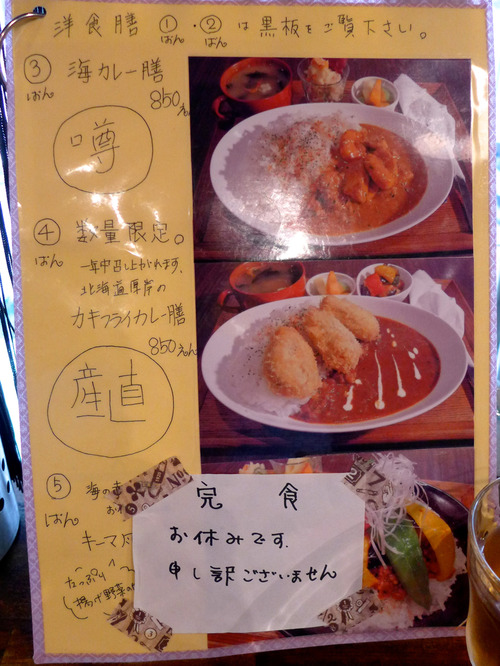 洋食膳 ①・②は黒板をご覧下さい。
ばん ばん
③ 海カレー膳
ばん
850えん
噂
④ 数量限定。
ばん
一年中召し上がれます、
北海道厚岸の
カキフライカレー膳
850えん
産直
⑤ 海の幸
ばん
キーマ
たっぷり
揚げ野菜の
完食
お休みです。
申し訳ございません